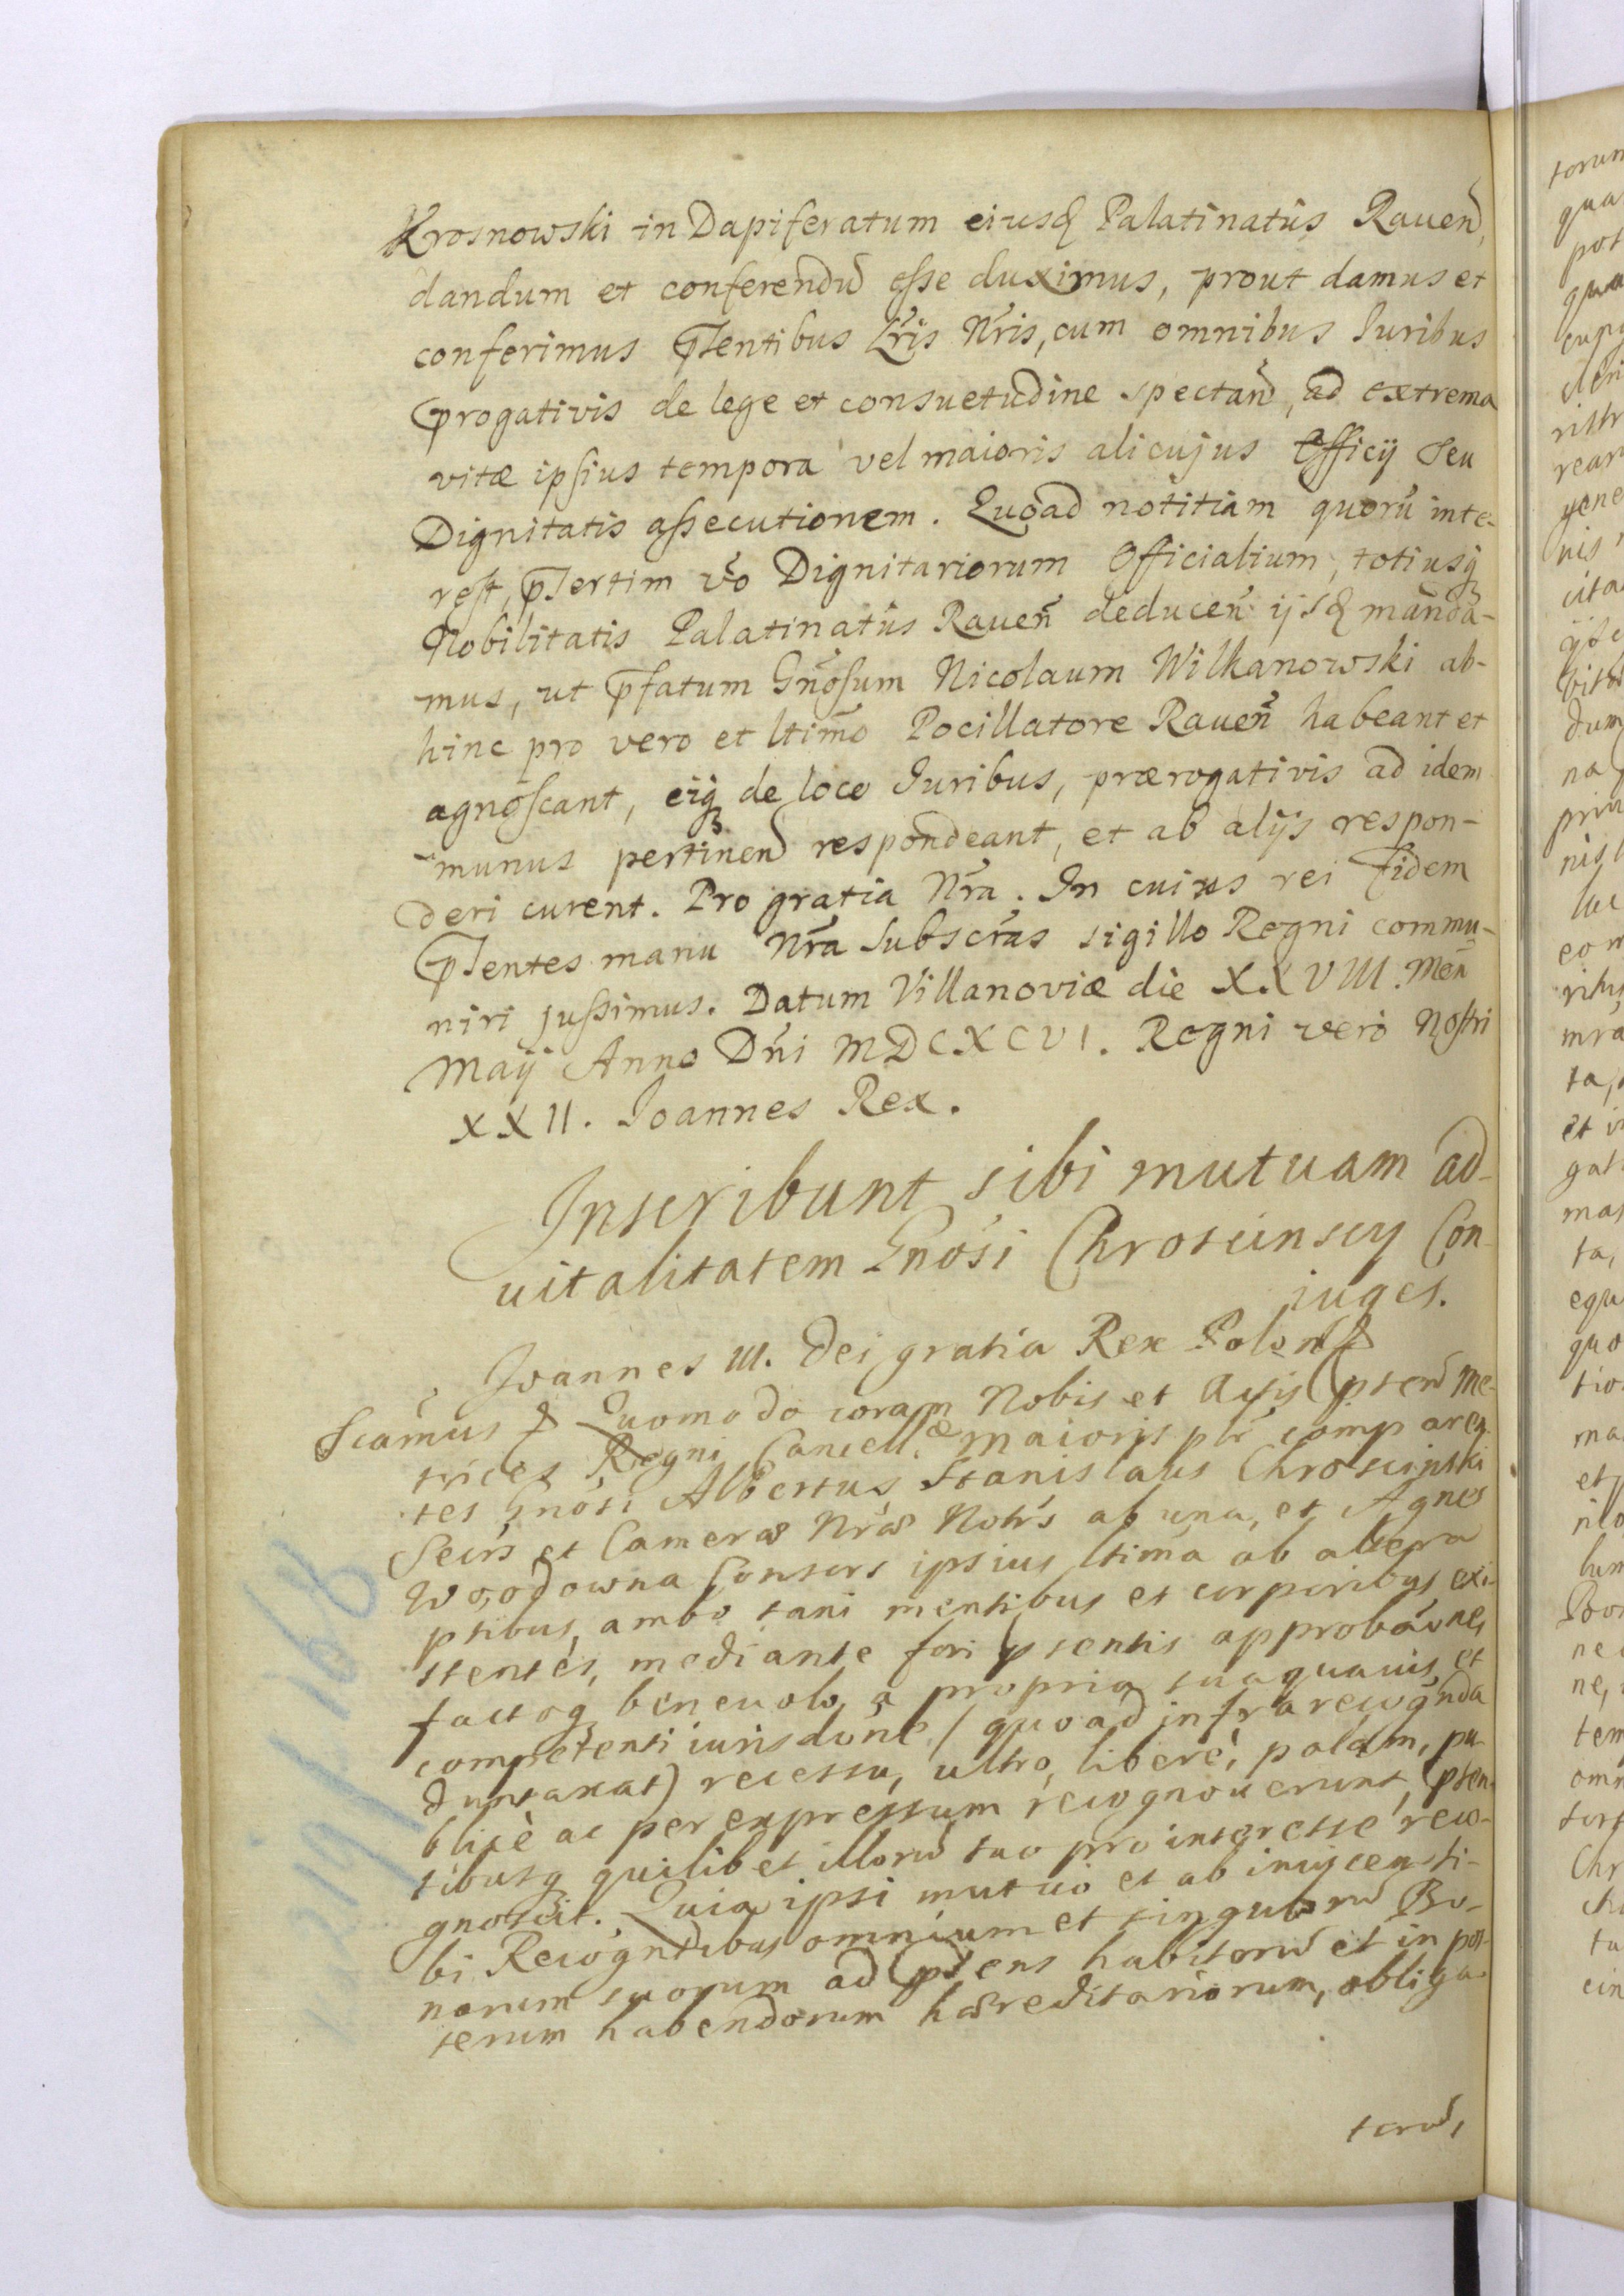 Krosnowski in Dapiferatum eiusq Palatinatûs Rauen̄,
dandum et conferendū esse duximus, prout damus et
conferimus p̄sentibus Lr̄is Nr̄is, cum omnibus Iuribus
p̄rogativis de lege et consuetudine spectan̄, ad extrema
vitæ ipsius tempora vel maioris alicujus Officij seu
Dignitatis assecutionem. Quoad notitiam quorū inte-
rest, p̄sertim vō Dignitariorum Officialium, totiusq
Nobilitatis Palatinatûs Rauen̄ deducen̄ ijsq manda-
mus, ut p̄fatum Gn̄osum Nicolaum Wilkanowski ab-
hinc pro vero et ltim̄o Pocillatore Rauen̄ habeant et
agnoscant, eiq de loco Iuribus, prærogativis ad idem
munus pertinen̄ respondeant, et ab alijs respon-
deri curent. Pro gratia Nr̄a. In cuius rei fidem
p̄sentes manu Nr̄a subscr̄as sigillo Regni commu-
niri jussimus. Datum Villanoviæ die XXVIII. Men̄
Maij Anno Dn̄i MDCXCVI. Regni vero Nostri
XXII. Joannes Rex.
Inscribunt sibi mutuam ad-
uitalitatem Gnōsi Chroscinscy Con-
iuges.
Joannes III. Dei gratia Rex Polon̄ &
Scamūs & Quomodo coram Nobis et Actis p̄sten̄ Me-
trices Regni Cancell.æ Maioris pl̄r comparen-
tes Gnōsi Albertus Stanislaus Chroscinski
Secr̄s et Cameræ Nr̄æ Notr̄s ab una, et Agnes
Consors ipsius ltima ab altera
ptibus, ambo sani mentibus et corporibus exi-
stentes, mediante fori p̄sentis approbāōne,
factoq benevolo, a propria sua quavis, et
competenti iurisdōne / quoad infra recogn̄da
duntaxat) recessu, ultro, liberè, palam, pu-
blicè ac per expressum recognouerunt, p̄sen-
tibusq quilibet illorū suo pro interesse reco-
gnoscit. Quia ipsi mutuo et ab inuicem si-
bi Recogntibus omnium et singulorū Bo-
norum suorum ad p̄sens habitorū et in pos-
terum habendorum hæreditariorum, obliga-
torū,